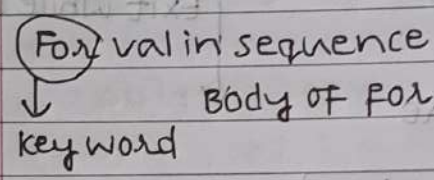 For val in sequence
Body of for
keyword